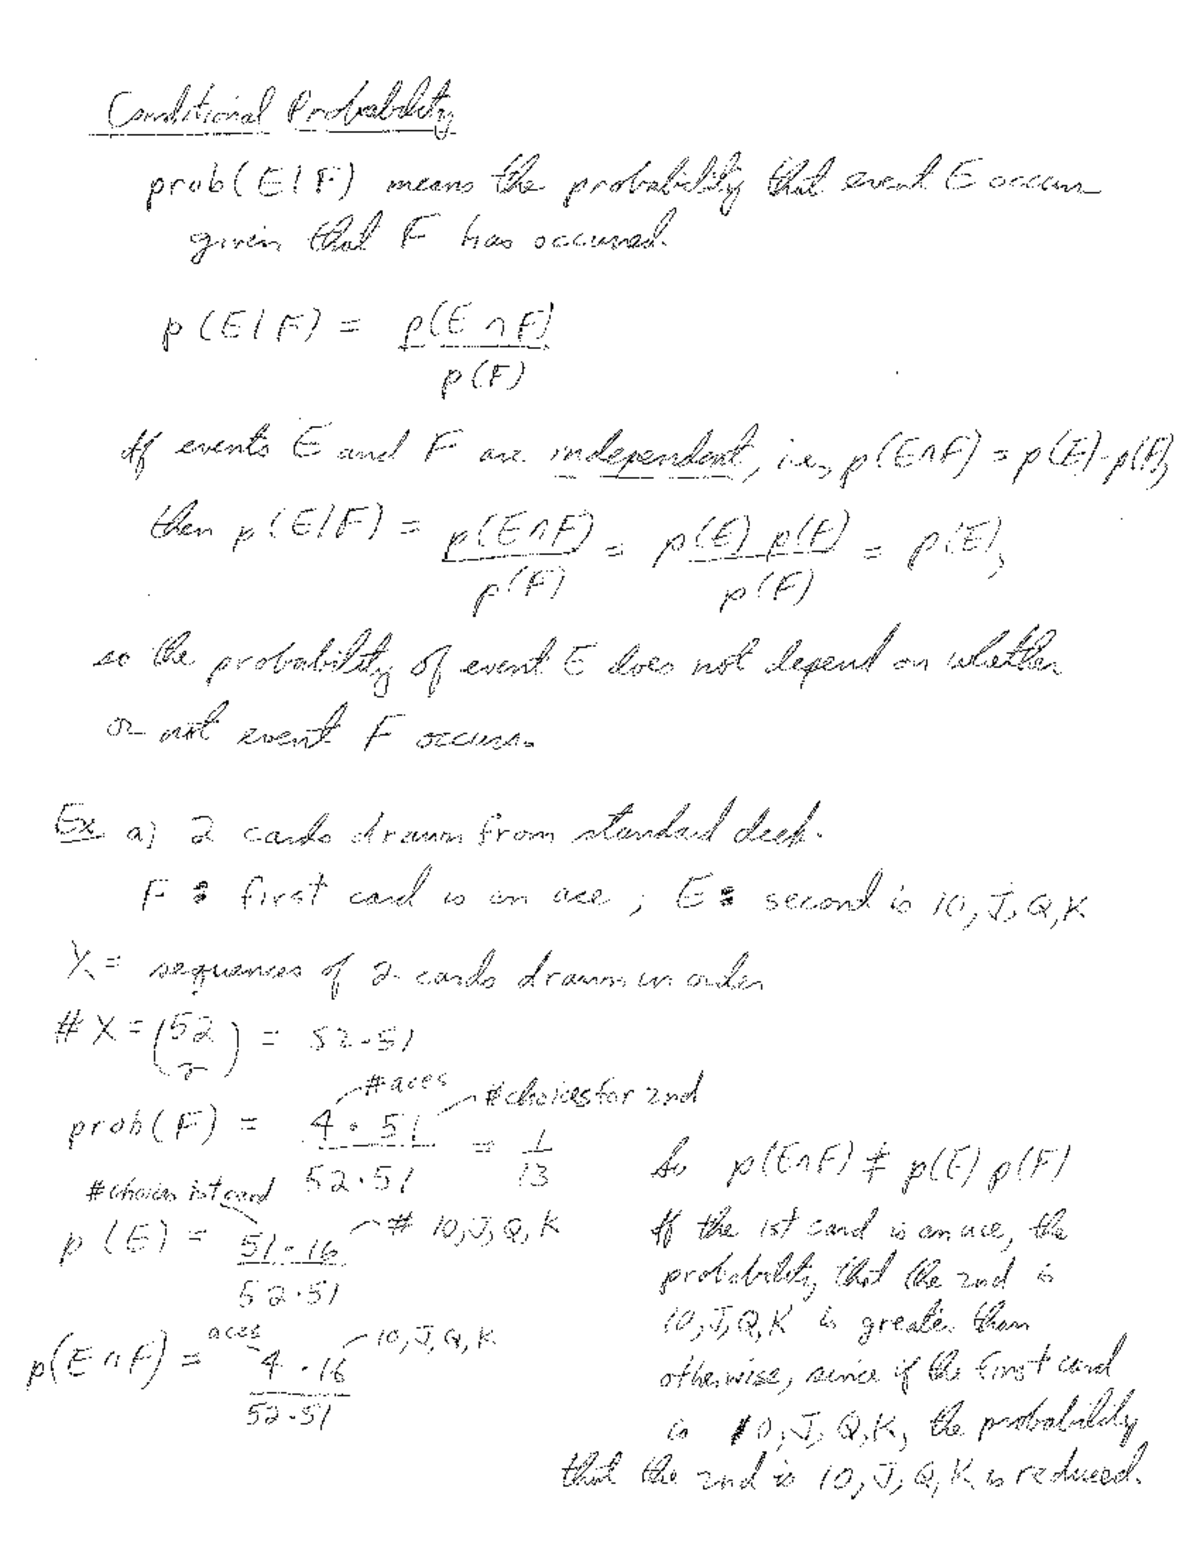 Conditional Probability
prob(E|F) means the probability that event E occurs
given that F has occurred.
p(E|F) = p(E ∩ F)
p(F)
If events E and F are independent, i.e., p(E∩F) = p(E)·p(F),
then p(E|F) = p(E∩F) = p(E) p(F) = p(E),
p(F) p(F)
so the probability of event E does not depend on whether
or not event F occurs.
Ex a) 2 cards drawn from standard deck.
F: first card is an ace; E: second is 10, J, Q, K
X = sequences of 2 cards drawn in order
#X = (52 2) = 52·51
#aces #choices for 2nd
prob(F) = 4·51 = 1
52·51 13
#choices 1st card
p(E) = 51·16 # 10, J, Q, K
52·51
p(E∩F) = aces 4·16 10, J, Q, K
52·51
So p(E∩F) ≠ p(E) p(F)
If the 1st card is an ace, the
probability that the 2nd is
10, J, Q, K is greater than
otherwise, since if the first card
is 10, J, Q, K, the probability
that the 2nd is 10, J, Q, K is reduced.